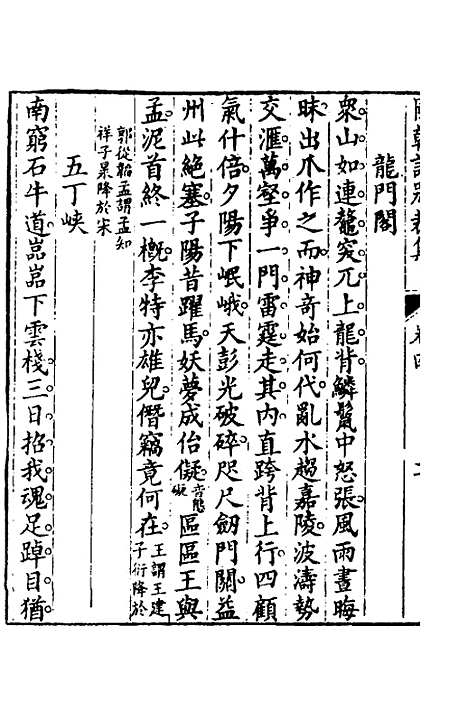 龍門閣
眾山如連鼇突兀上龍背鱗鬣中怒張風雨晝晦
昧出爪作之而神奇始何代亂水趨嘉陵波濤勢
交滙萬壑爭一門雷霆走其內直跨背上行四顧
氣什倍夕陽下岷峨天彭光破碎咫尺劒門關益
州此絕塞子陽昔躍馬妖夢成佁儗音態礙區區王與
孟泥首終一槪李特亦雄兒僭竊竟何在王謂王建子衍降於
郭從韜孟謂孟知祥子杲降於宋
五丁峽
南窮石牛道嵓嵓下雲棧三日招我魂足踔目猶